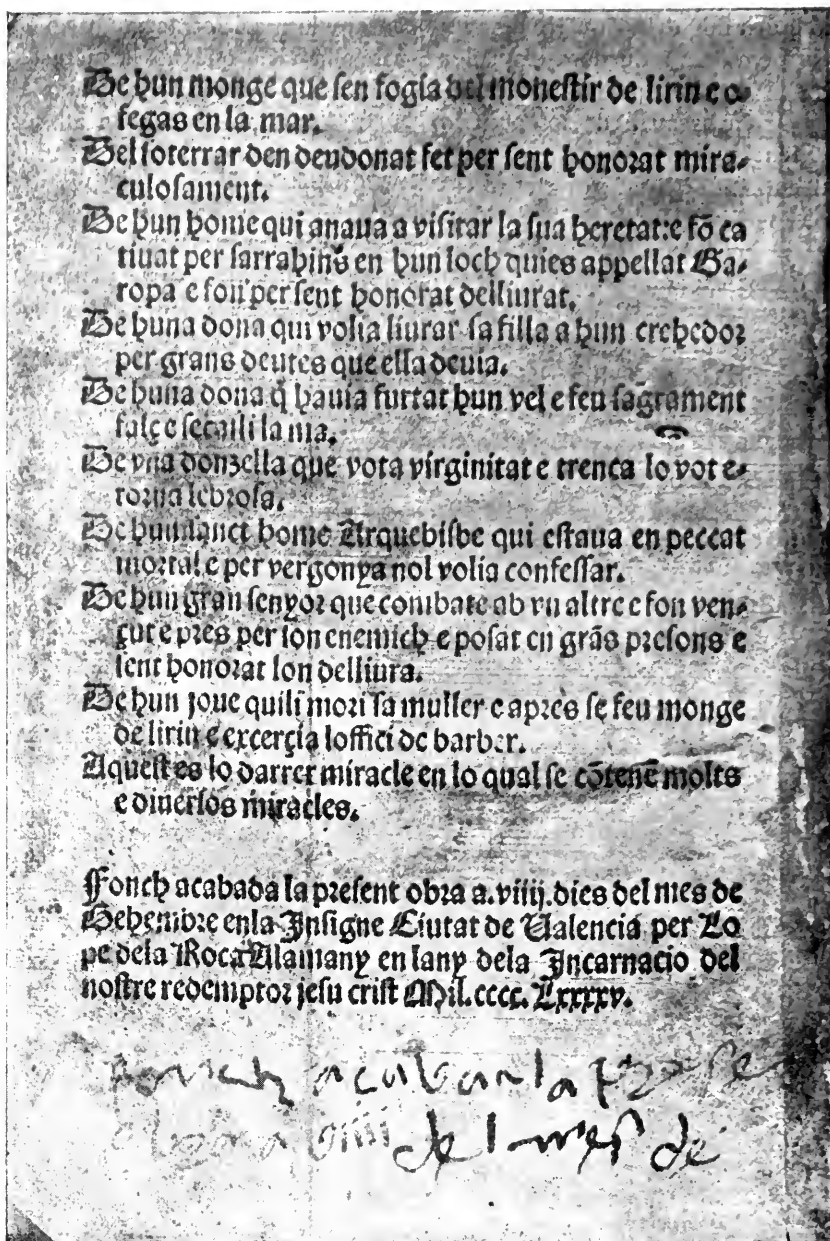 De hun monge que sen fogia del monestir de lirin e o⸗
fegas en la mar.
Del soterrar den deudonat fet per sent honorat mira⸗
culosament.
De hun home qui anaua a visitar la sua heretat: e fõ ca
tiuat per sarrahins en hun loch quies appellat Ga⸗
ropa e fon per sent honorat delliurat.
De huna dona qui volia liurar sa filla a hun crehedor
per grans deutes que ella deuia.
De huna dona q̃ hauia furtat hun vel e feu sagrament
fals e secaili la ma.
De vna donzella que vota virginitat e trenca lo vot e⸗
torna lebrosa.
De hun sanct home Arquebisbe qui estaua en peccat
mortal e per vergonya nol volia confessar.
De hun gran senyor que combate ab vn altre e fon ven⸗
çut e pres per son enemich e posat en grãs presons e
sent honorat lon delliura.
De hun joue quili mori sa muller e apres se feu monge
de lirin e exercia loffici de barber.
Aquest es lo darrer miracle en lo qual se cõtenẽ molts
e diuersos miracles.
Fonch acabada la present obra a .viiij. dies del mes de
Setembre en la Insigne Ciutat de Valencia per Lo
pe dela Roca Alamany en lany dela Incarnacio del
nostre redemptor jesu crist Mil.cccc. Lxxxxv.
Fonch acabar la prese
obra a viiii del mes de